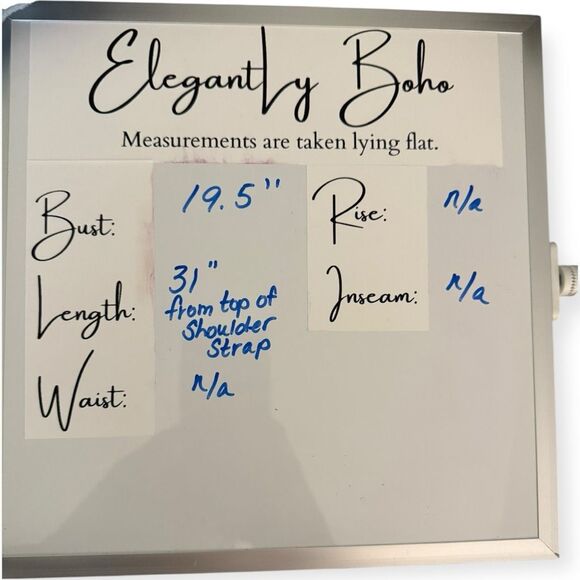 Elegantly Boho
Measurements are taken lying flat.
Bust: 19.5"
Length: 31"
from top of
Shoulder
Strap
Waist: n/a
Rise: n/a
Inseam: n/a